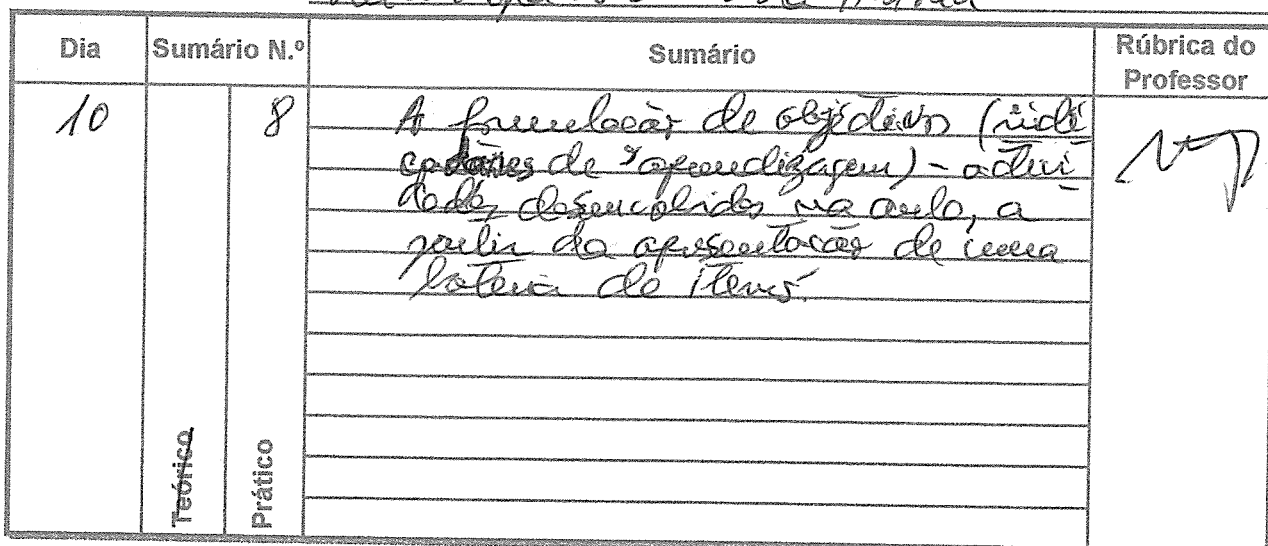 Dia
Sumário N.º
Sumário
Rúbrica do
Professor
10
8
A formulação de objectivos (indi
cadores de aprendizagem) - activi
dades desenvolvidas na aula, a
partir da apresentação de uma
bateria de itens.
Teórico
Prático